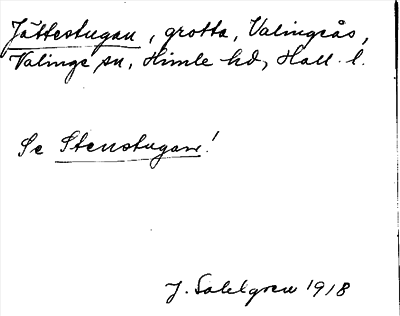 Jättestugan, grotta, Valingeås,
Valinge sn, Himle hd, Hall. l.
Se Stenstugan!
J. Sahlgren 1918